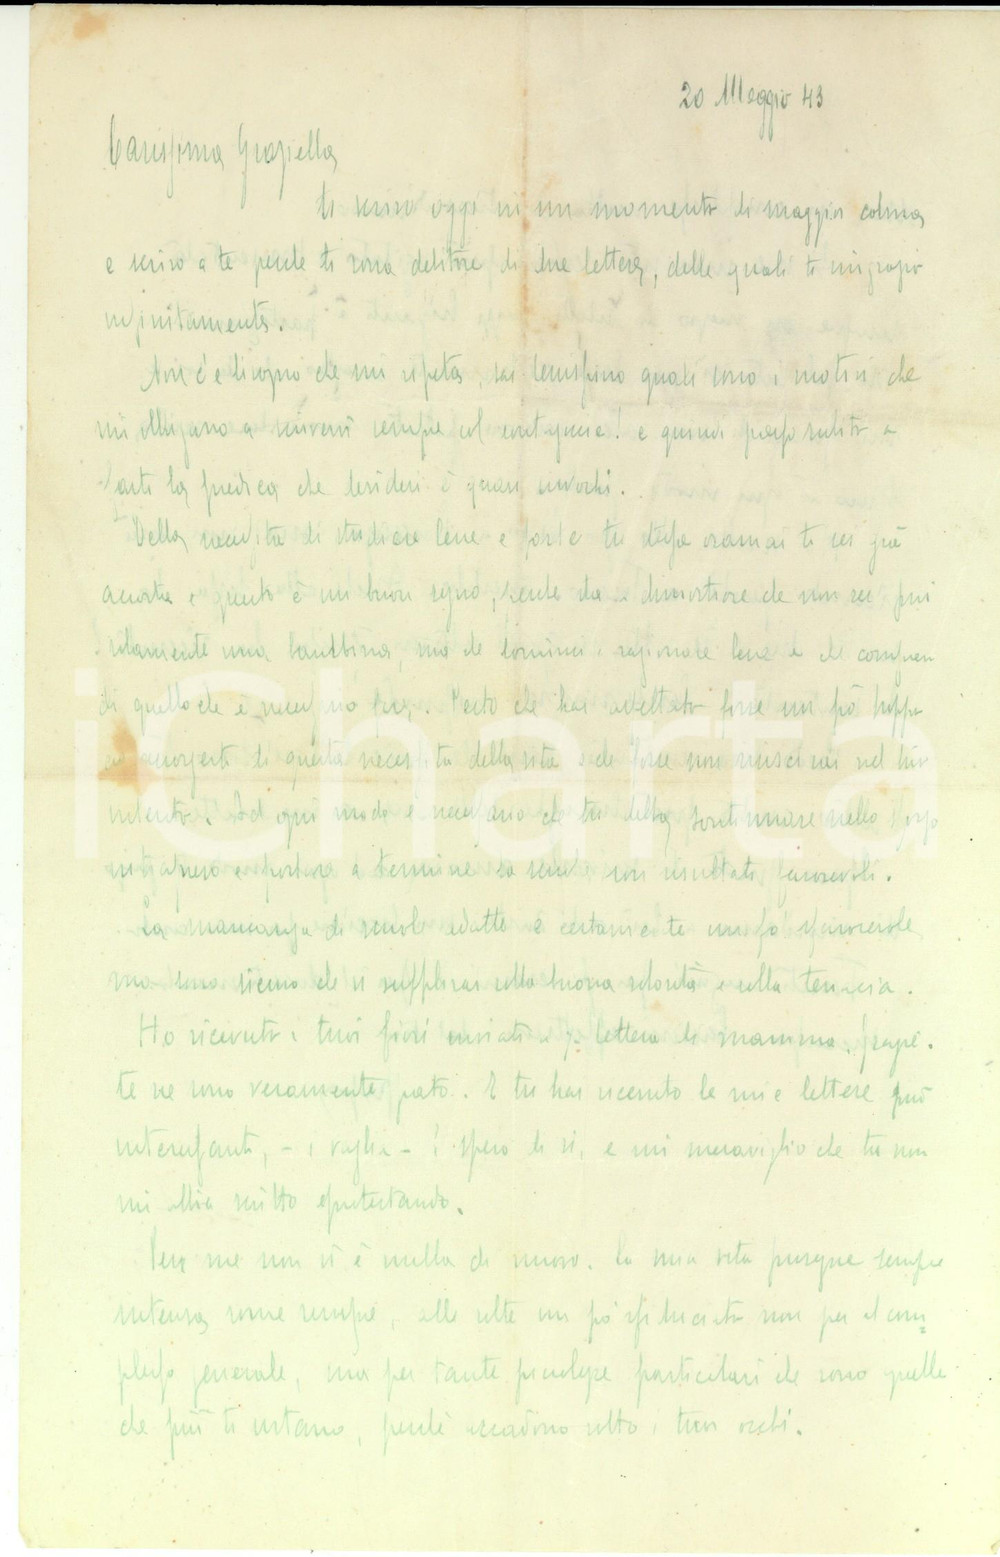 20 Maggio 43
Carissima Graziella
ti scrivo oggi in un momento di maggior calma
e scrivo a te perché ti sono debitore di due lettere, delle quali ti ringrazio
infinitamente.
Non c'è bisogno che mi ripeta, sai benissimo quali sono i motivi che
mi obbligano a scriverti sempre col contagocce! e quindi passo subito a
farti la predica che desideri e quasi invochi.
Della necessità di studiare bene e forte tu stessa oramai ti sei già
accorta e questo è un buon segno, perché sta a dimostrare che non sei più
solamente una bambina, ma che cominci a ragionare bene e che compren
di quello che è necessario fare. Certo che hai aspettato forse un pò troppo
ad accorgerti di questa necessità della vita e che forse non riuscirai nel tuo
intento. Ad ogni modo è necessario che tu debba continuare nello sforzo
intrapreso e portare a termine la scuola con risultati favorevoli.
La mancanza di scuole adatte è certamente un po' sfavorevole
ma sono sicuro che vi supplirai colla buona volontà e colla tenacia.
Ho ricevuto i tuoi fiori inviati a 1/2 lettera di mamma, grazie.
te ne sono veramente grato. E tu hai ricevuto le mie lettere più
interessanti, - i vaglia - ? spero di sì, e mi meraviglio che tu non
mi abbia scritto protestando.
Per me non vi è nulla di nuovo. La mia vita prosegue sempre
intensa come sempre, alle volte un pò sfiduciato non per il com=
plesso generale, ma per tante piccolezze particolari che sono quelle
che più ti urtano, perché accadono sotto i tuoi occhi.
iCharta